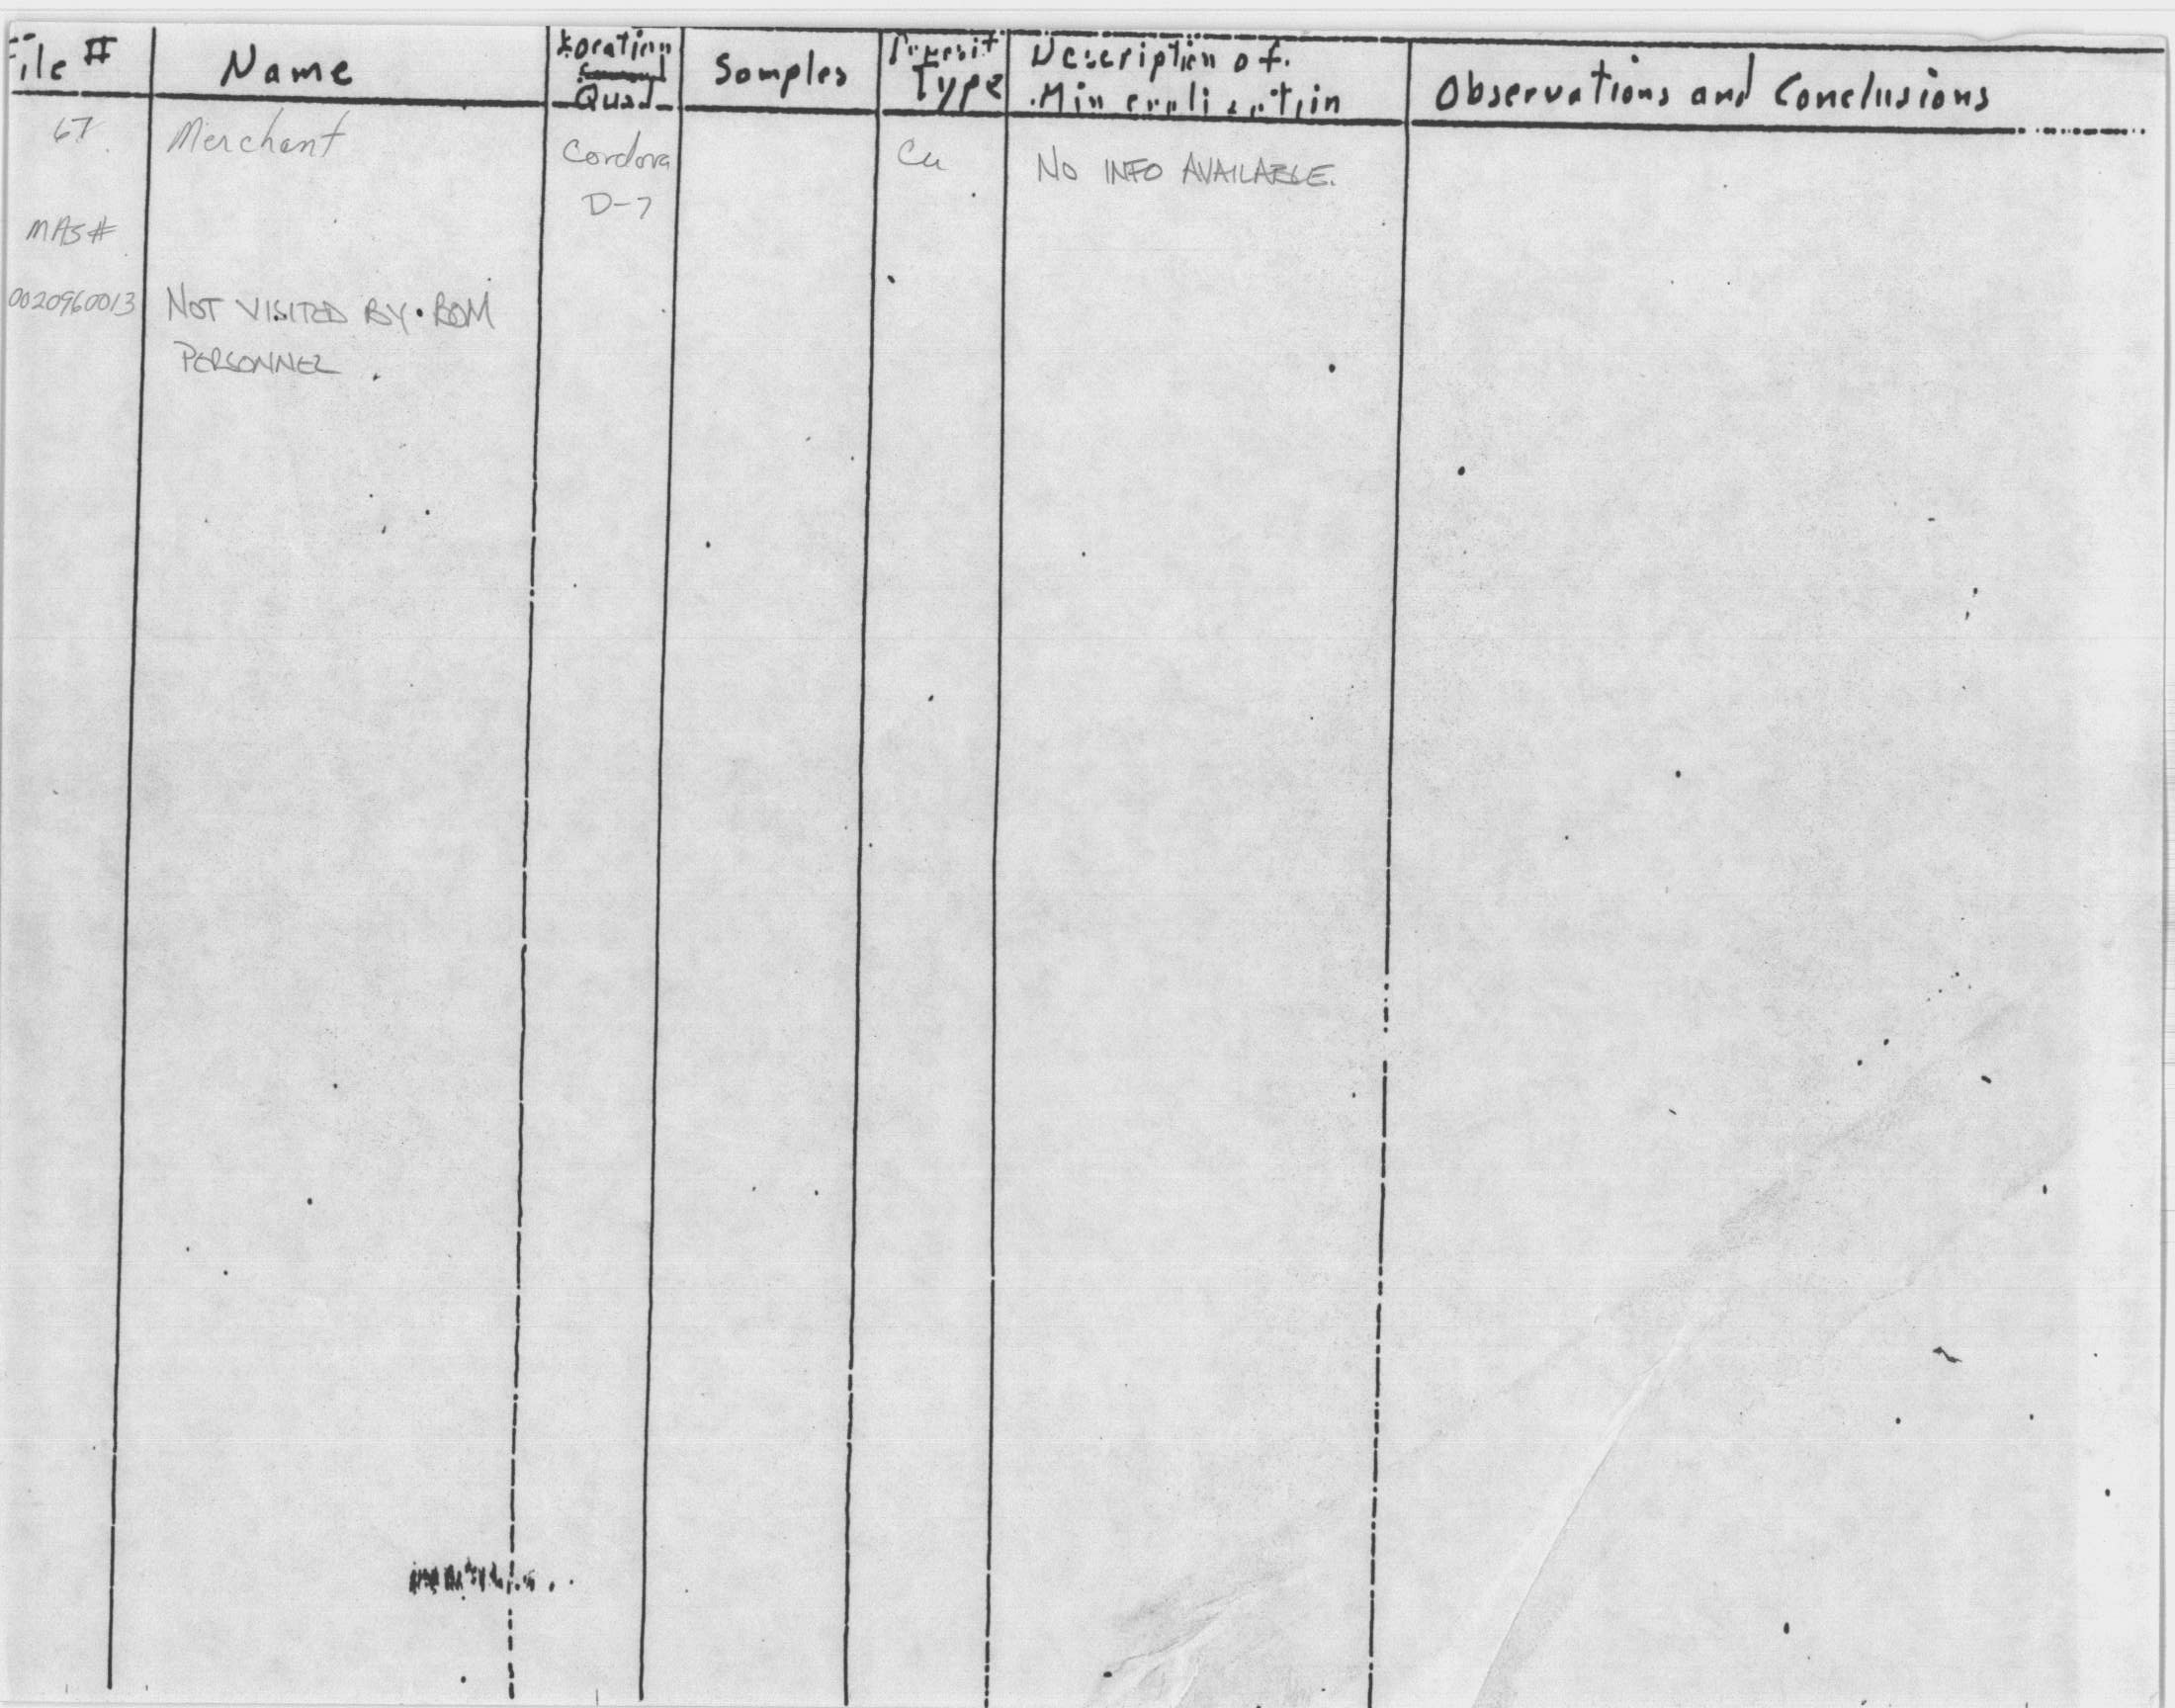 File #
Name
Location
Quad
Samples
Deposit
Type
Description of
Mineralization
Observations and Conclusions
67
Merchant
Cordova
D-7
Cu
No INFO AVAILABLE.
MAS#
0020960013
NOT VISITED BY BOM
PERSONNEL